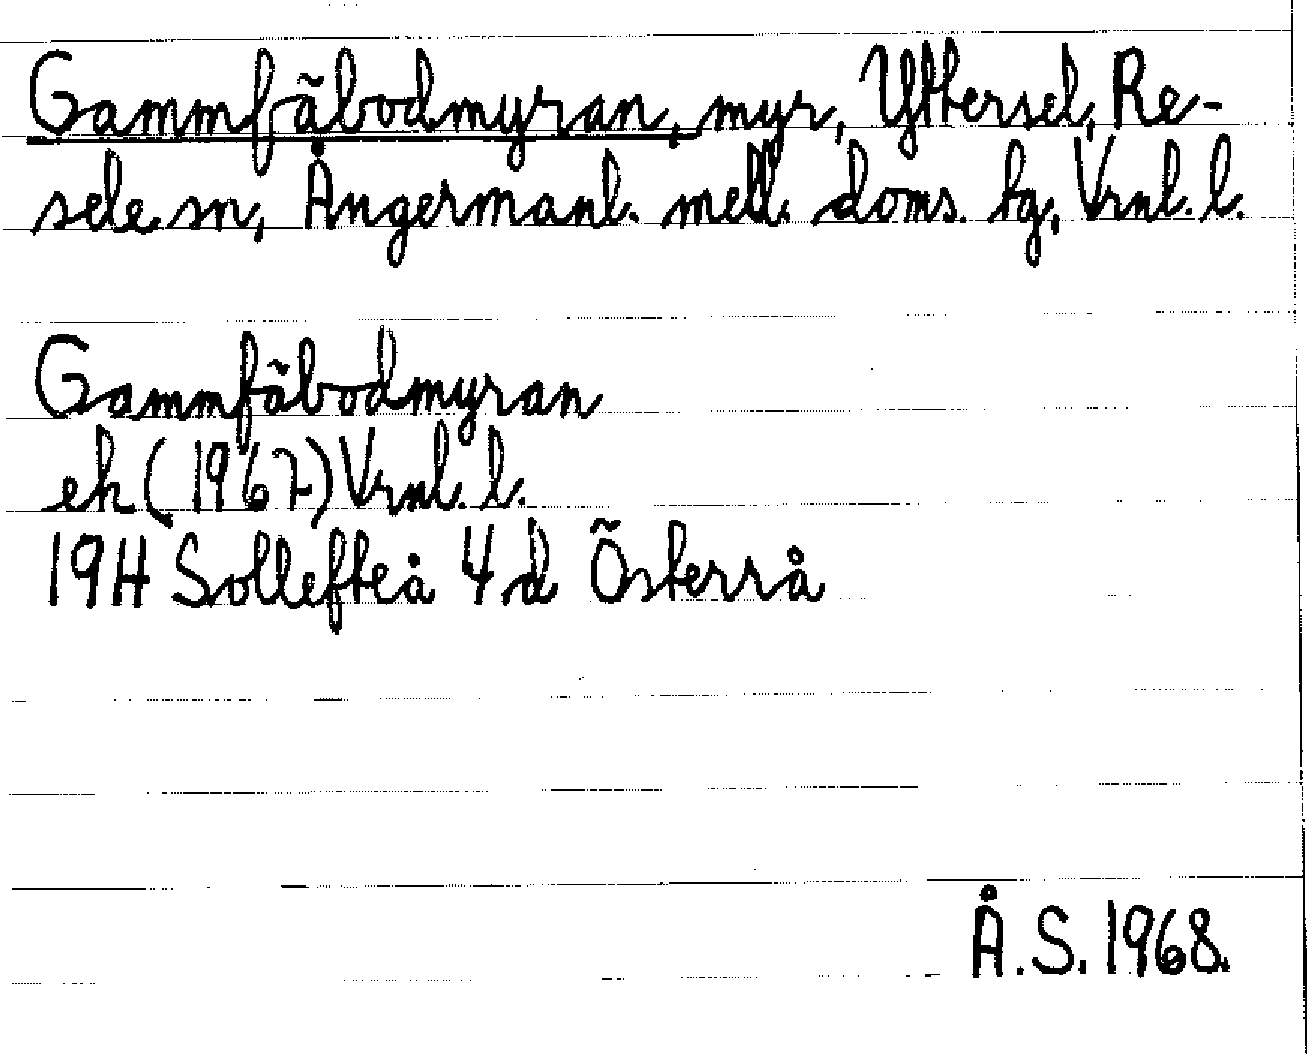 Gammfäbodmyran, myr, Yttersel, Re-
sele sn, Ångermanl. mell. doms. tg, Vrnl. l.
Gammfäbodmyran
ek (1967) Vrnl. l.
19H Sollefteå 4d Österrå
Å.S. 1968.